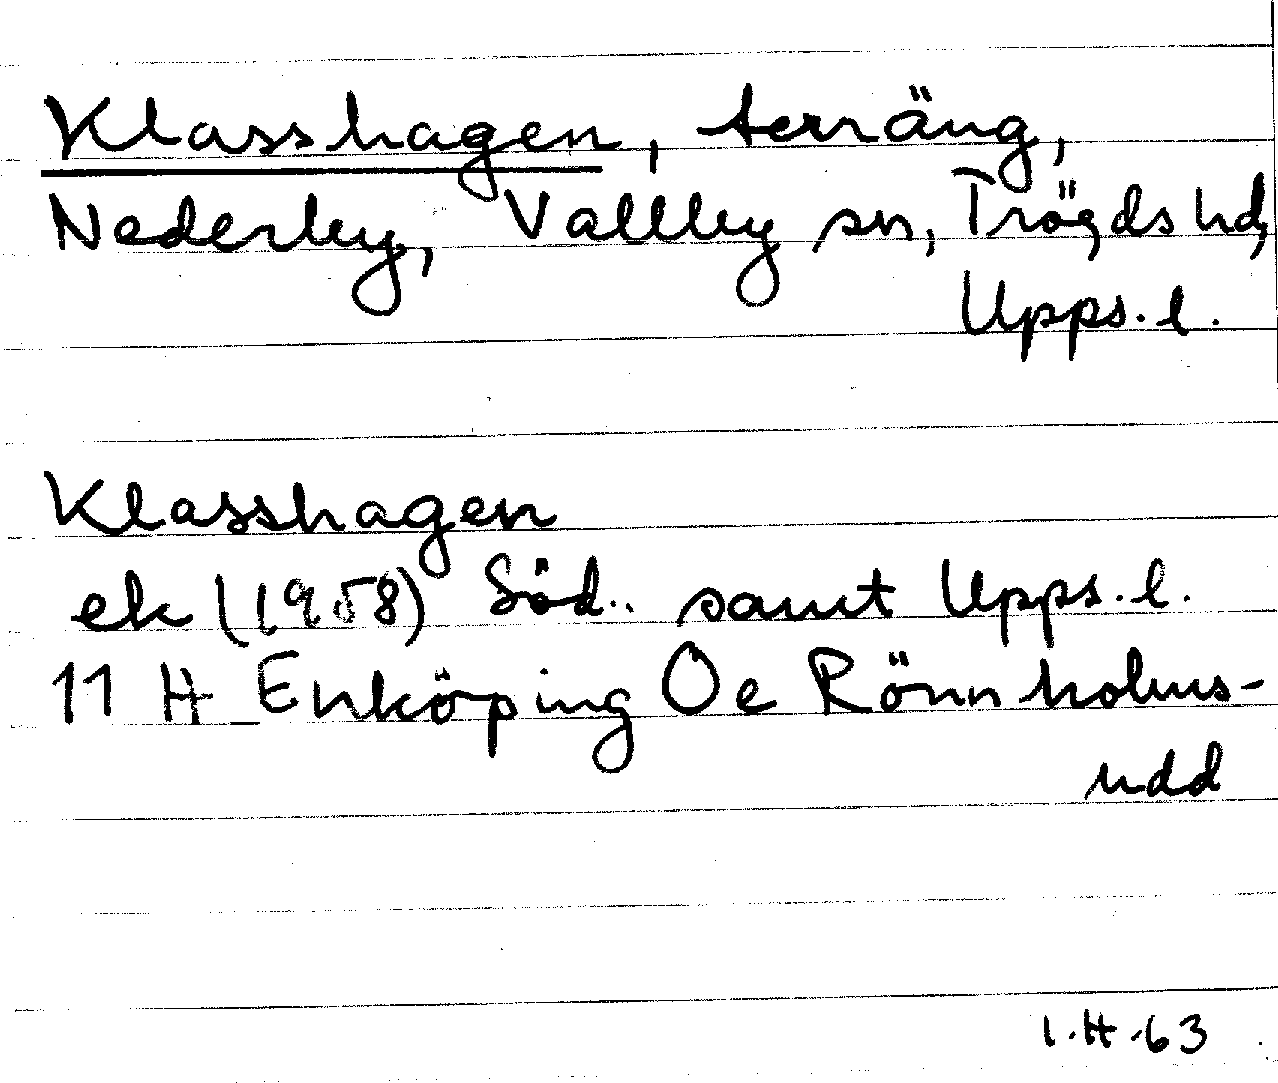 Klasshagen, terräng,
Nederby, Vallby sn, Trögds hd,
Upps. l.
Klasshagen
ek (1958) Söd.. samt Upps. l.
11 H Enköping Oe Rönnholms-
udd
I.H.63